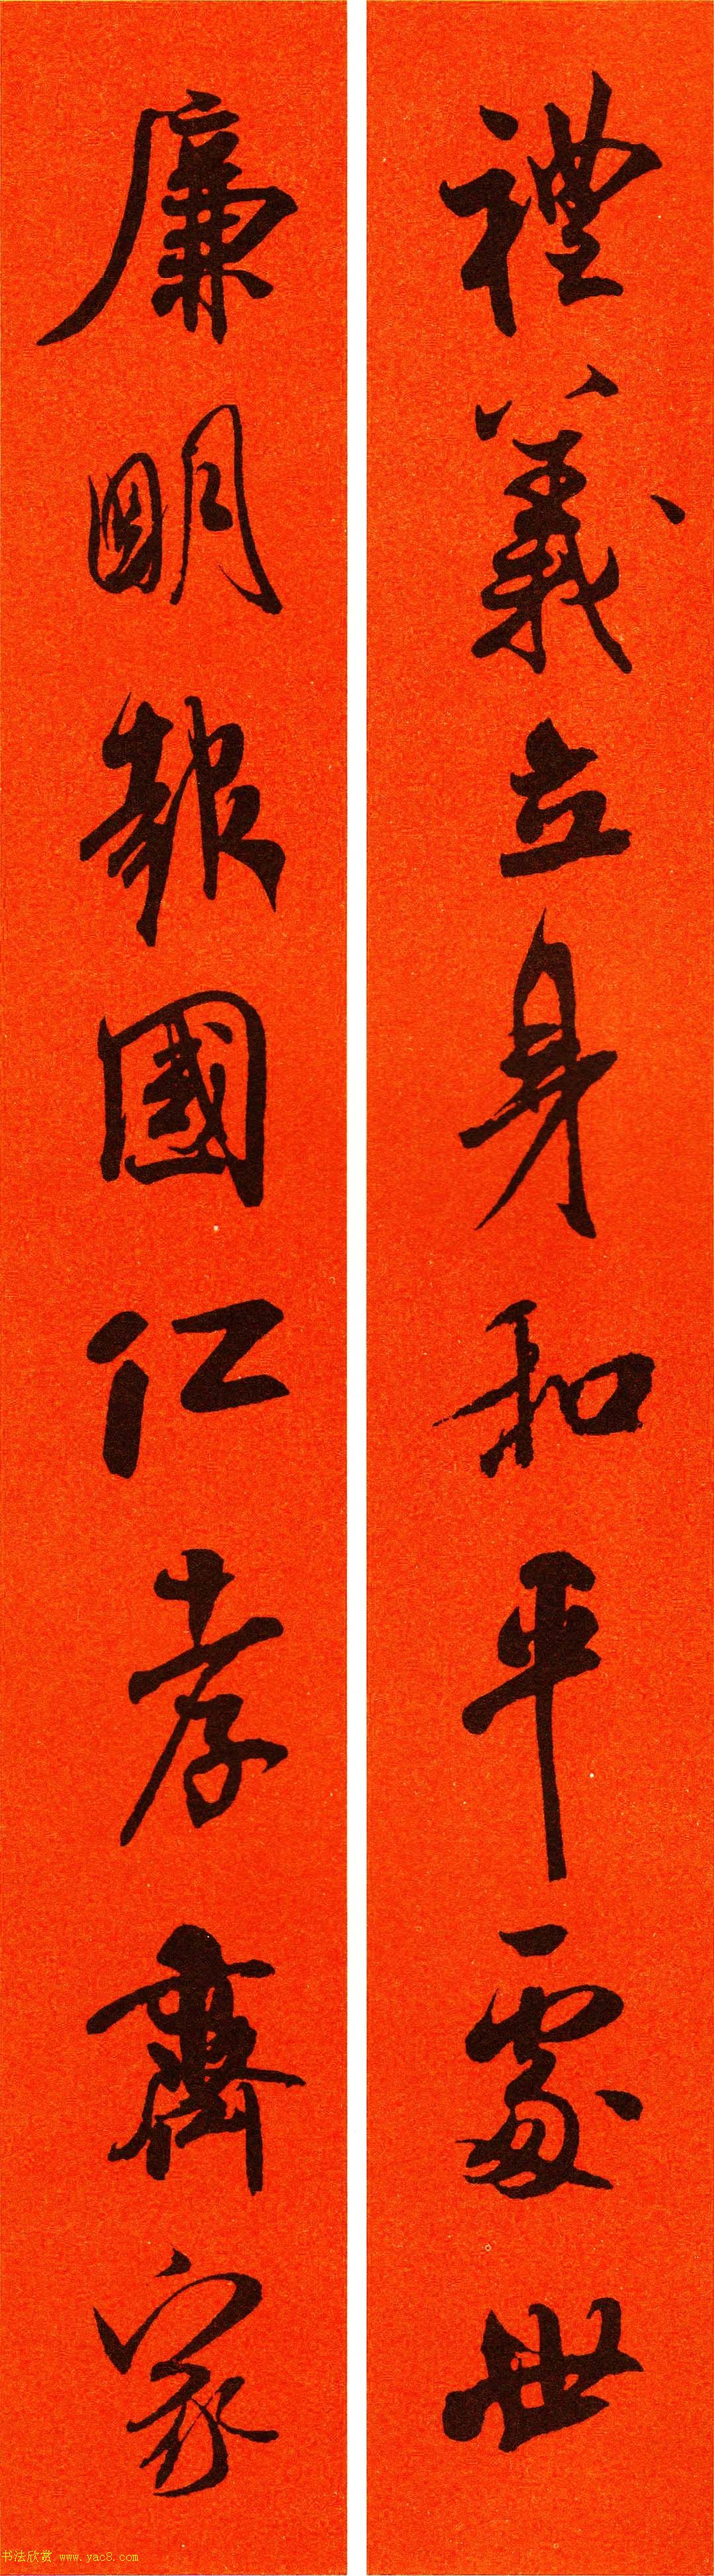 禮義立身和平處世
廉明報國仁孝齊家
书法欣赏 www.yac8.com